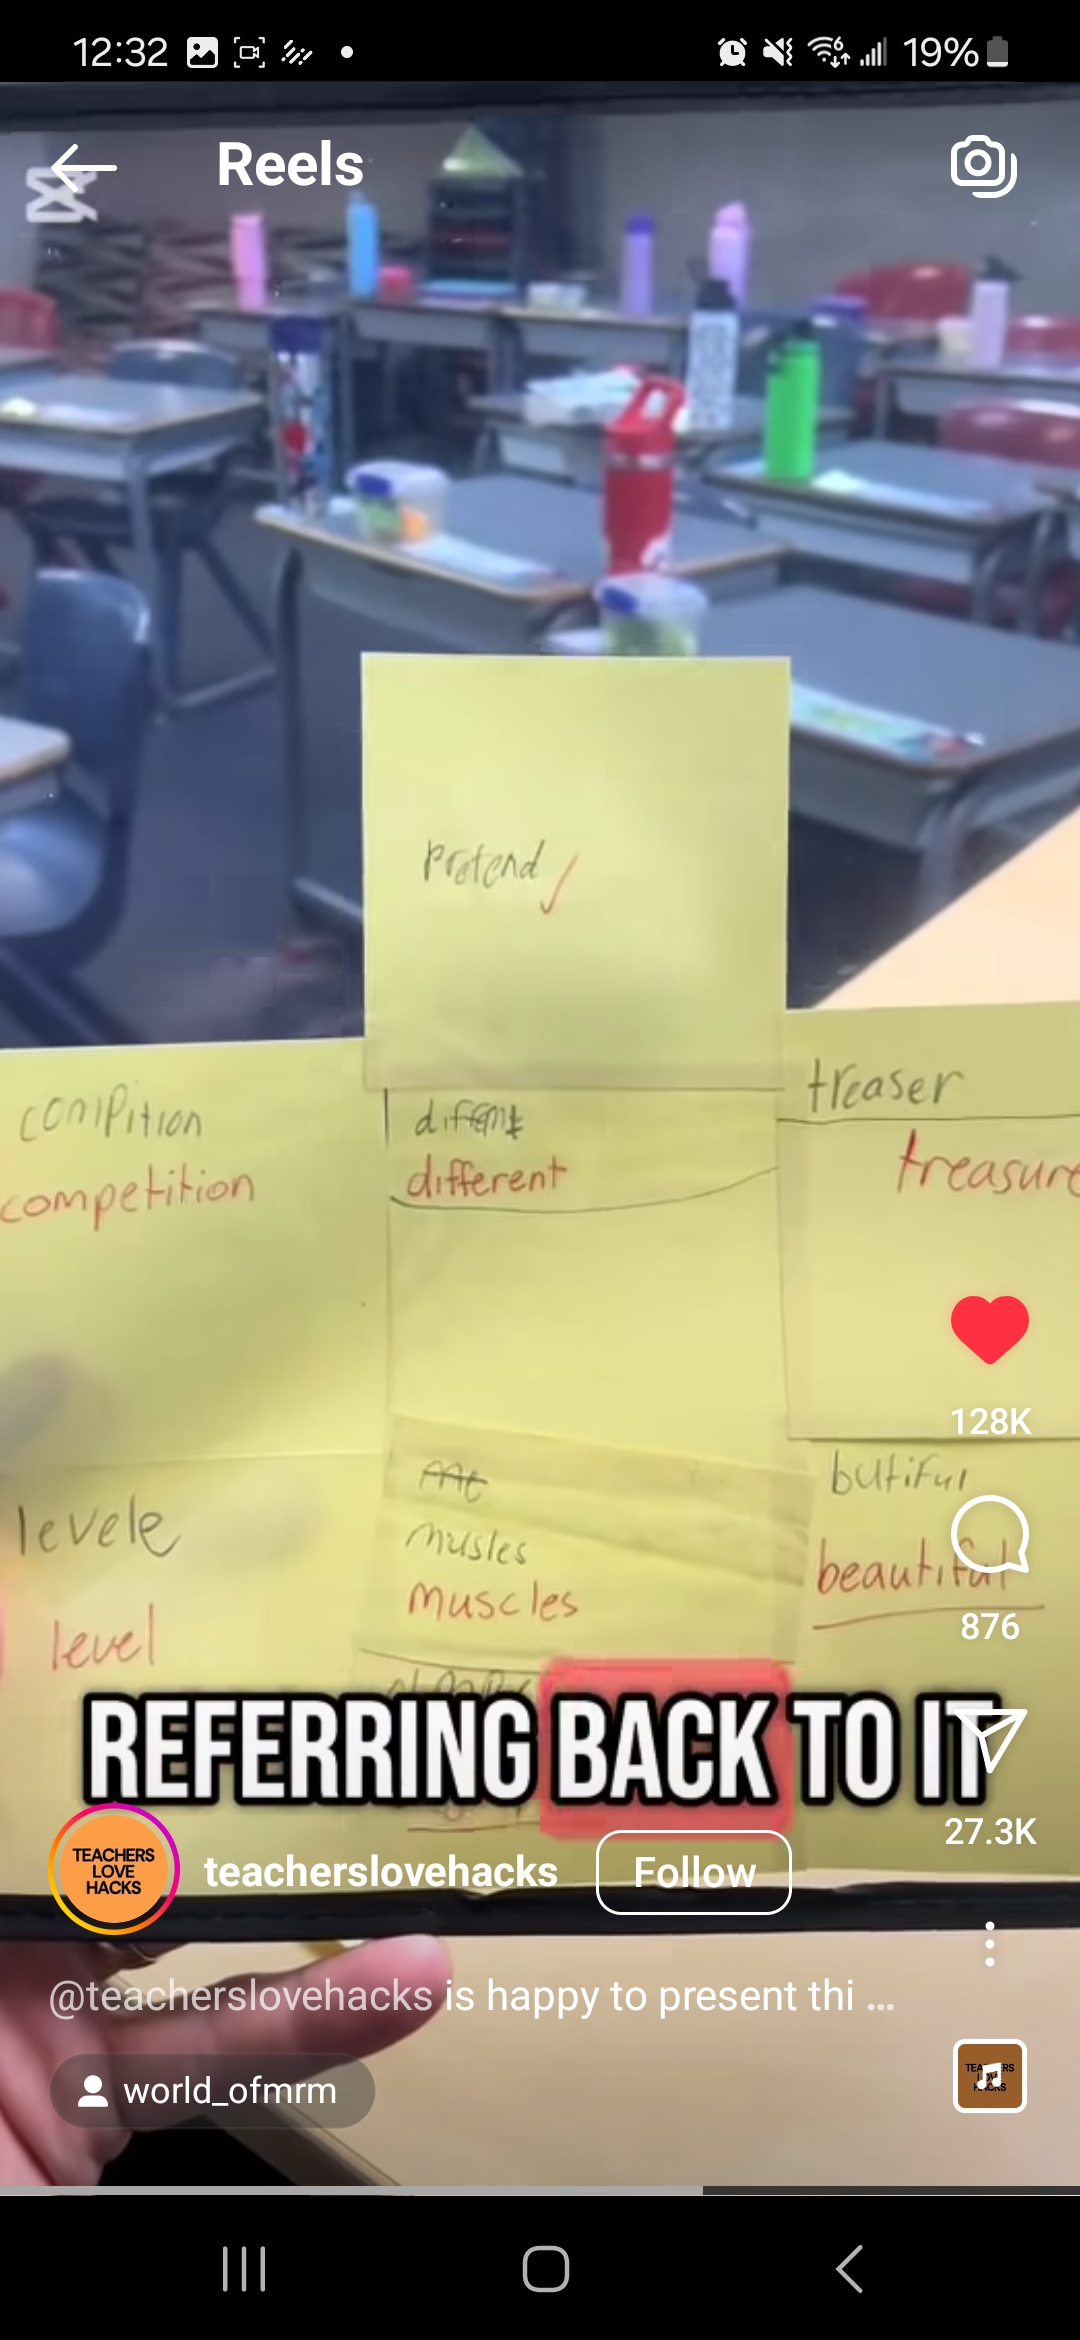 12:32
19%
Reels
Pretend
conipition
competition
diffent
different
treaser
treasure
levele
level
musles
muscles
butiful
beautiful
128K
876
REFERRING BACK TO IT
27.3K
TEACHERS
LOVE
HACKS
teacherslovehacks
Follow
@teacherslovehacks is happy to present thi ...
world_ofmrm